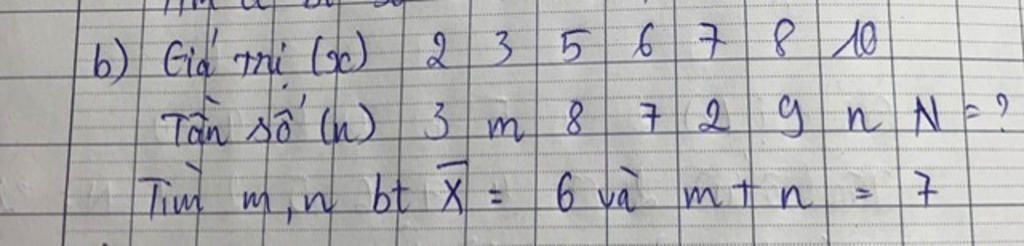 b) Giá trị (x) 2 3 5 6 7 8 10
Tần số (n) 3 m 8 7 2 9 n N = ?
Tìm m, n bt X̅ = 6 và m + n = 7